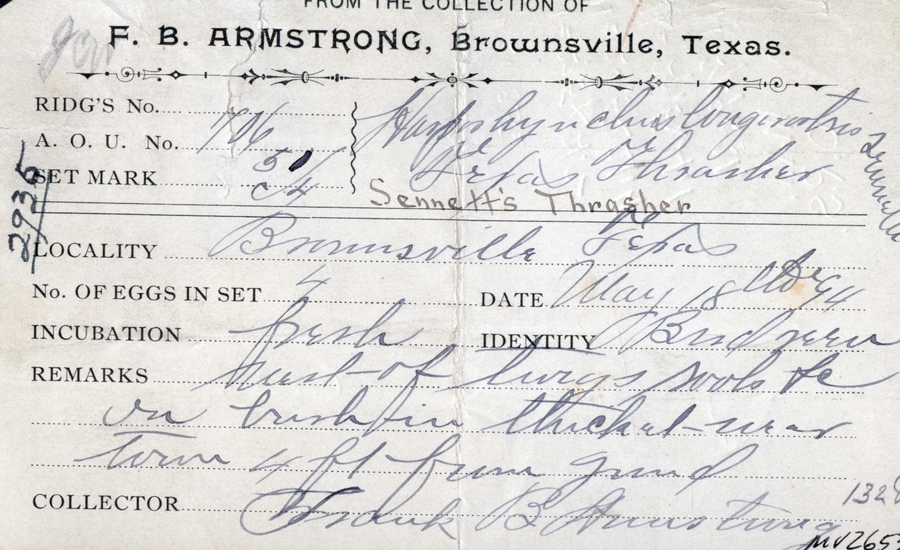 FROM THE COLLECTION OF
F. B. ARMSTRONG, Brownsville, Texas.
RIDG'S No.
Harporhynchus longirostris sennetti
A. O. U. No. 706
Texas Thrasher
SET MARK 51/C4
Sennett's Thrasher
2936
LOCALITY Brownsville Texas
No. OF EGGS IN SET 4
DATE May 18 94
INCUBATION fresh
IDENTITY Bird seen
REMARKS nest of twigs roots &c
on bush in thicket near
town 4 ft from
COLLECTOR Frank B Armstrong
132